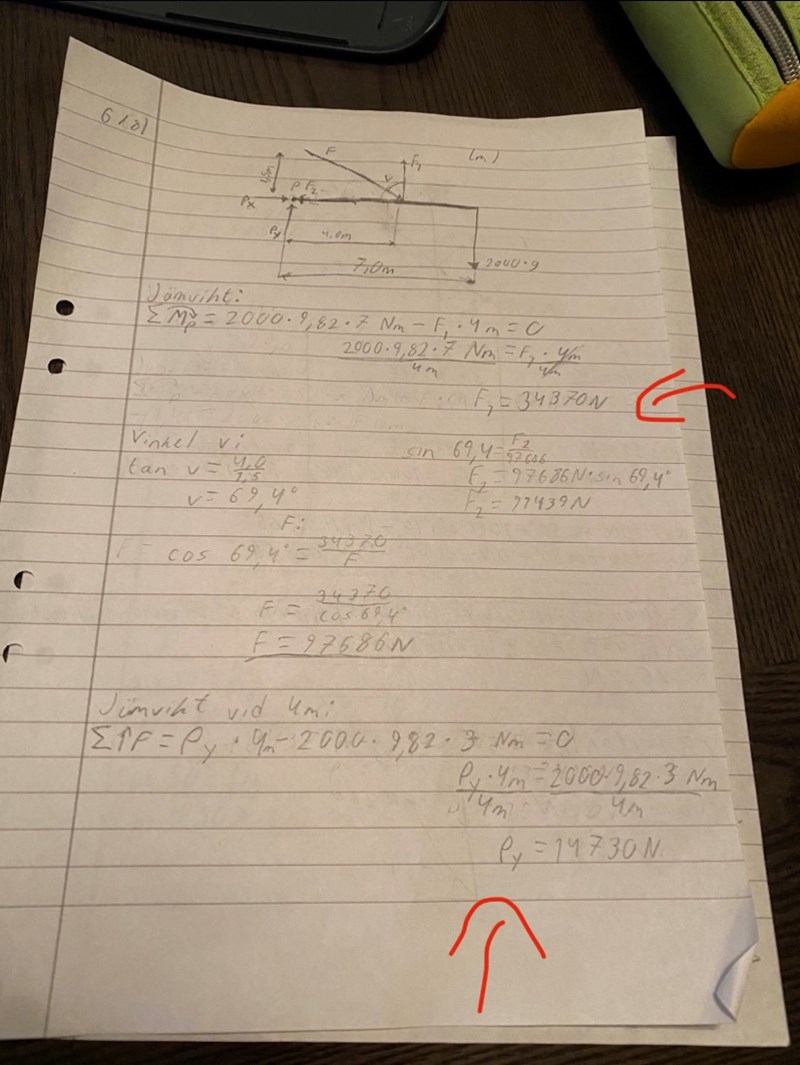 6.18)
F
F₁
(m)
1,5m
v
Px
P F₂
Py
4.0m
7,0m
2000·g
Jämvikt:
ΣMp = 2000·9,82·7 Nm - F₁·4m = 0
2000·9,82·7 Nm / 4m = F₁·4m / 4m
F₁ = 34370N
Vinkel v:
tan v = 4,0/1,5
v = 69,4°
sin 69,4 = F₂/97686
F₂ = 97686N·sin 69,4°
F₂ = 91439N
F:
F = cos 69,4° = 34370/F
F = 34370/cos 69,4°
F = 97686N
Jämvikt vid 4m:
Σ↑F = Py·4m - 2000·9,82·3 Nm = 0
Py·4m / 4m = 2000·9,82·3 Nm / 4m
Py = 14730N